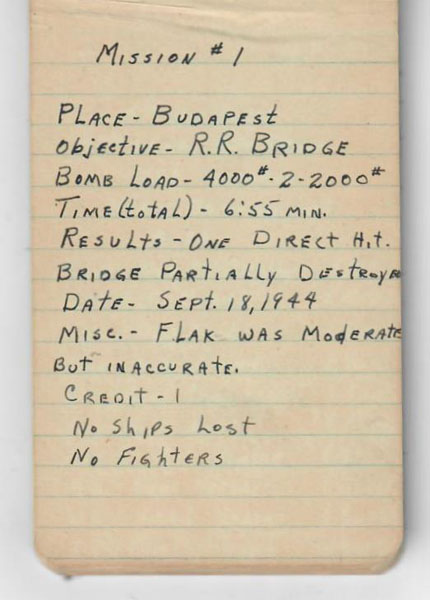 Mission #1
Place - Budapest
Objective - R.R. Bridge
Bomb Load - 4000# - 2-2000#
Time (total) - 6:55 min.
Results - One Direct Hit.
Bridge Partially Destroyed
Date - Sept. 18, 1944
Misc. - Flak was Moderate
But inaccurate.
Credit - 1
No Ships Lost
No Fighters